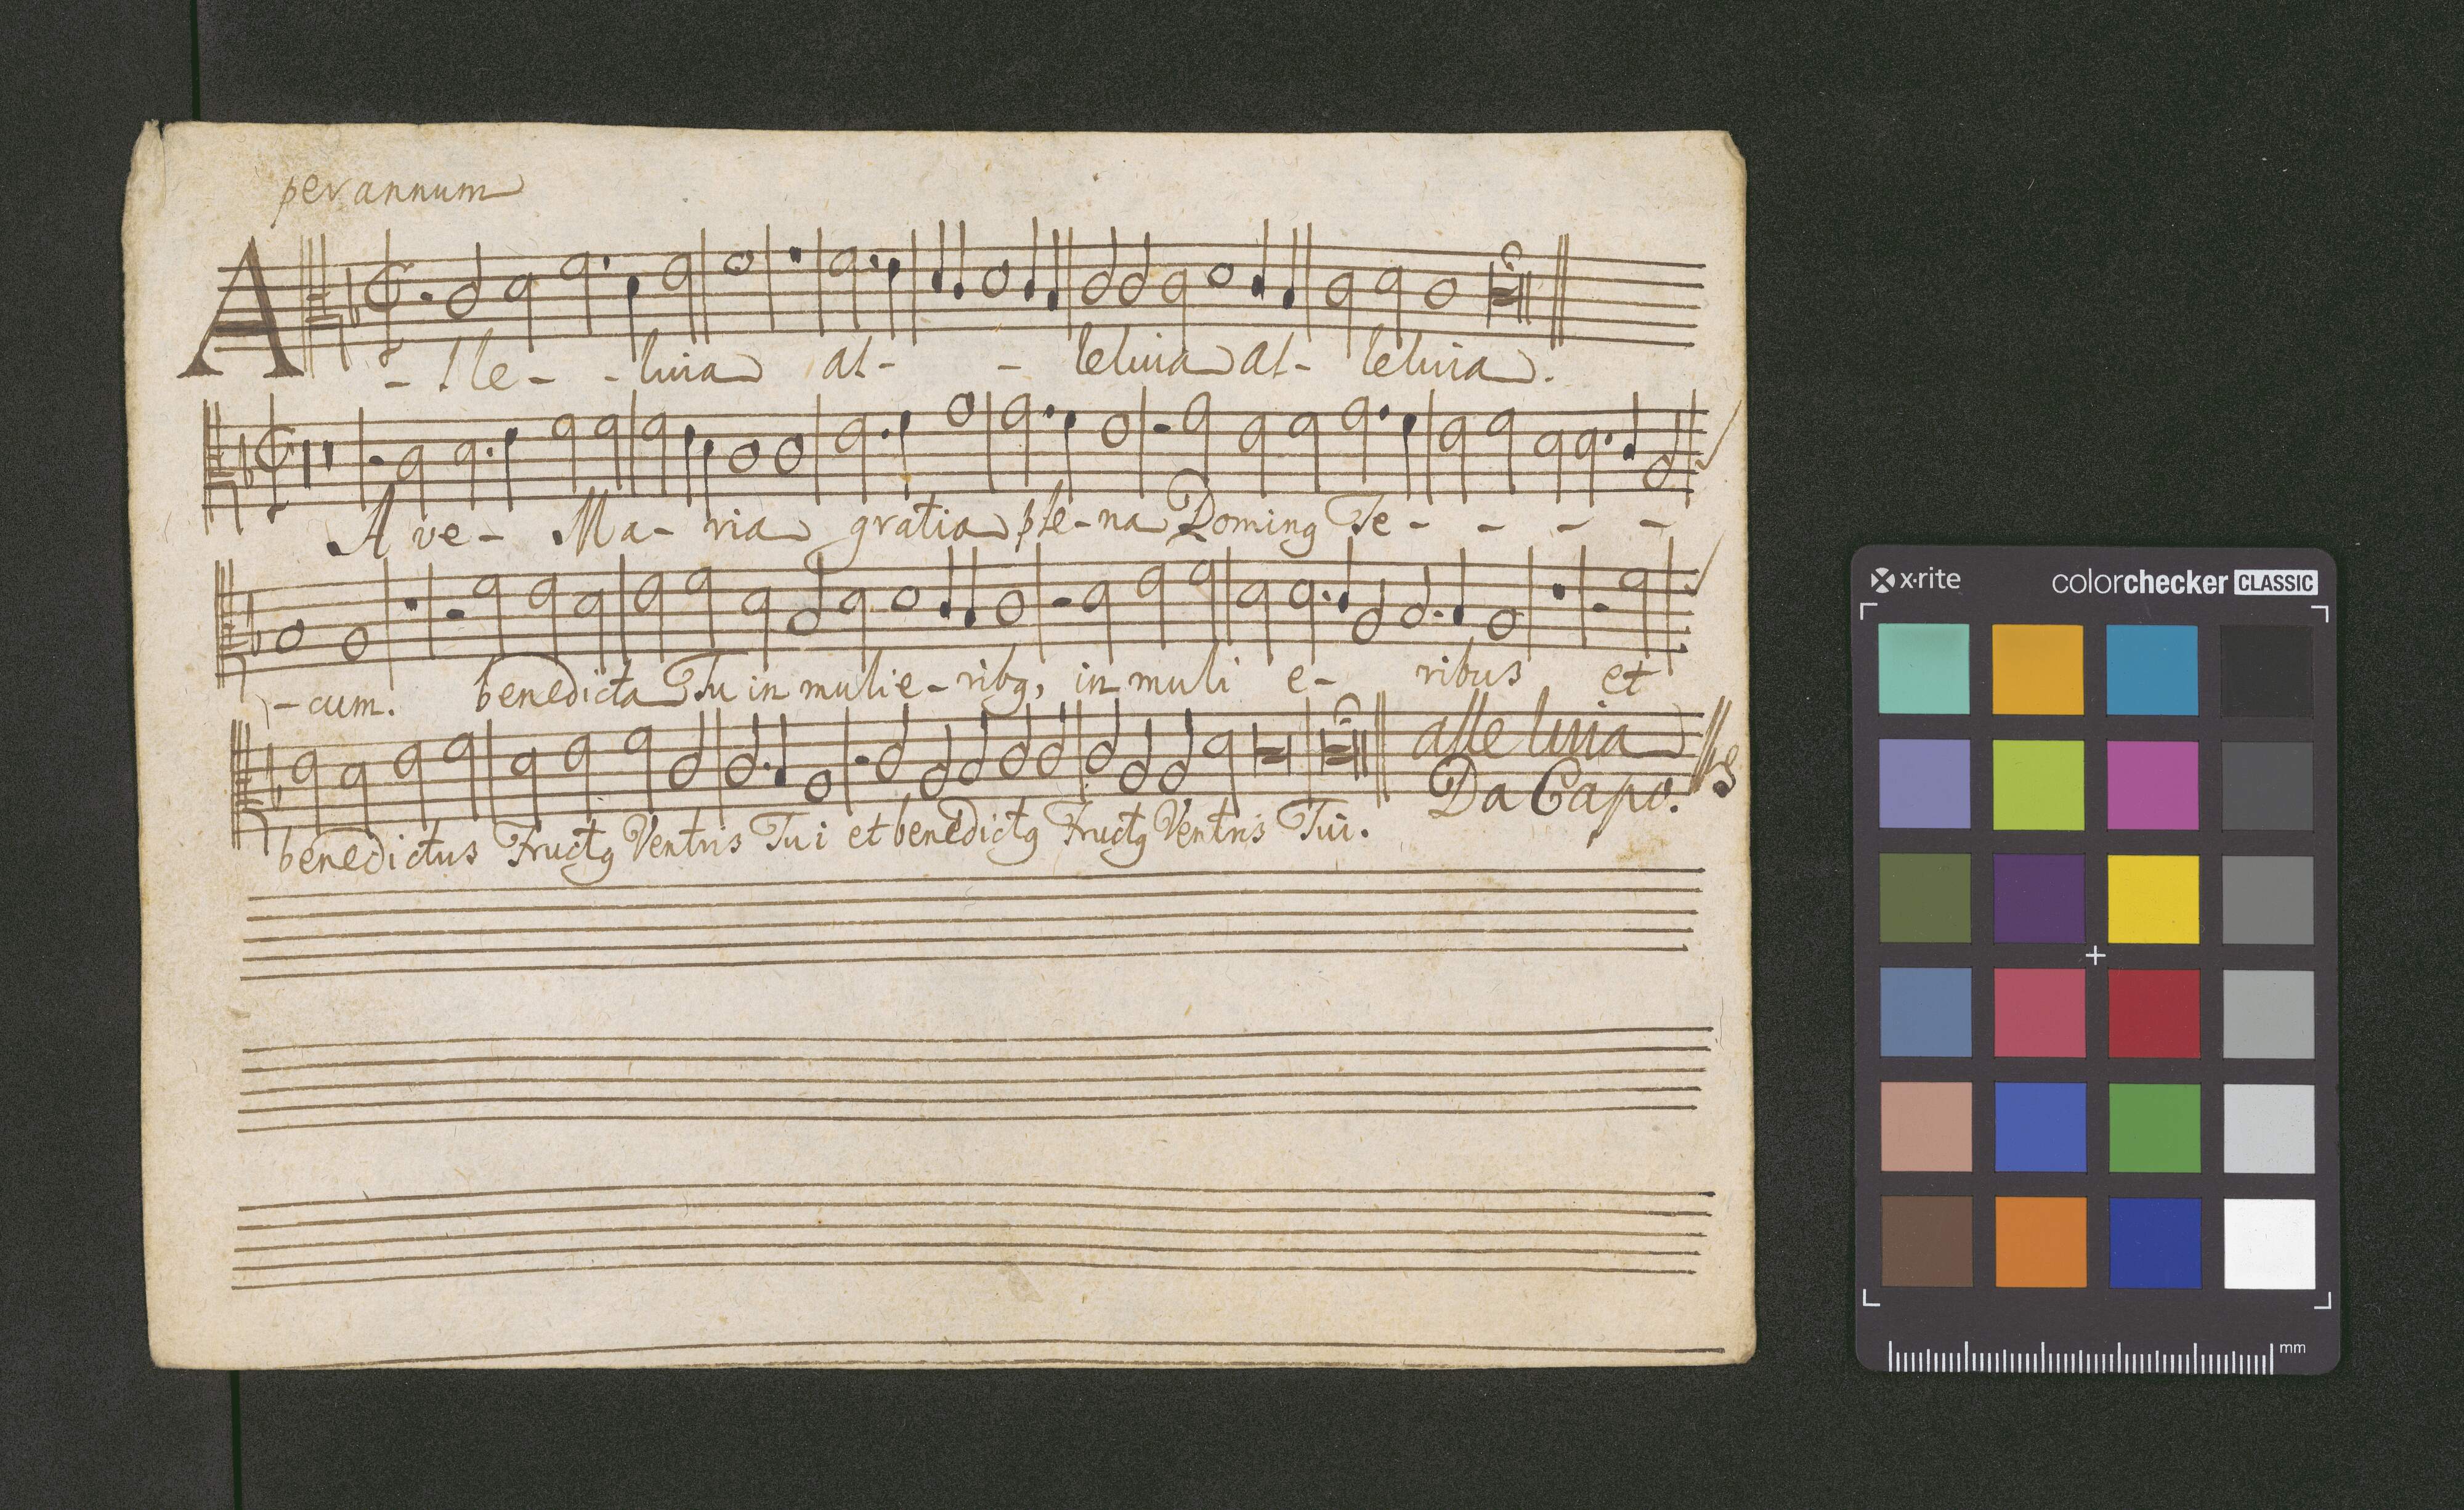 per annum
A - lle - - luia al - - leluia al - leluia.
Ave - Ma - ria gratia ple - na Dominꝰ Te - - - -
- cum. benedicta Tu in mulie - ribꝰ, in muli e - ribus et
alleluia
Da Capo.
benedictus Fructꝰ Ventris Tui et benedictꝰ Fructꝰ Ventris Tui.
x·rite colorchecker CLASSIC
mm